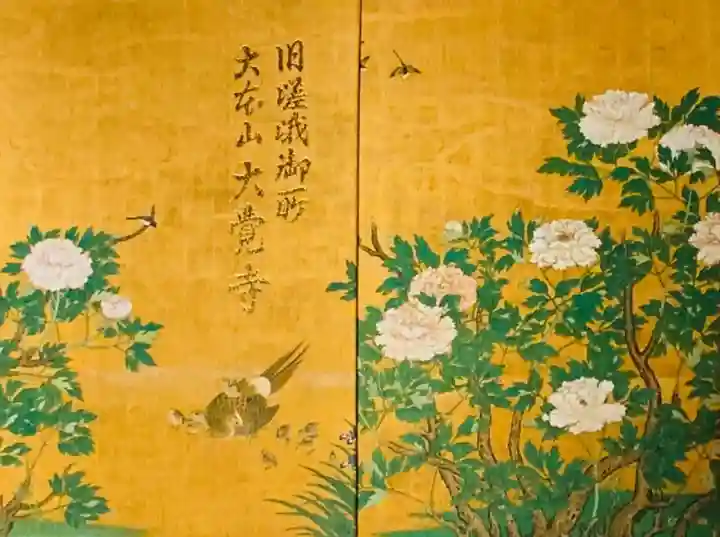 旧嵯峨御所
大本山大覚寺